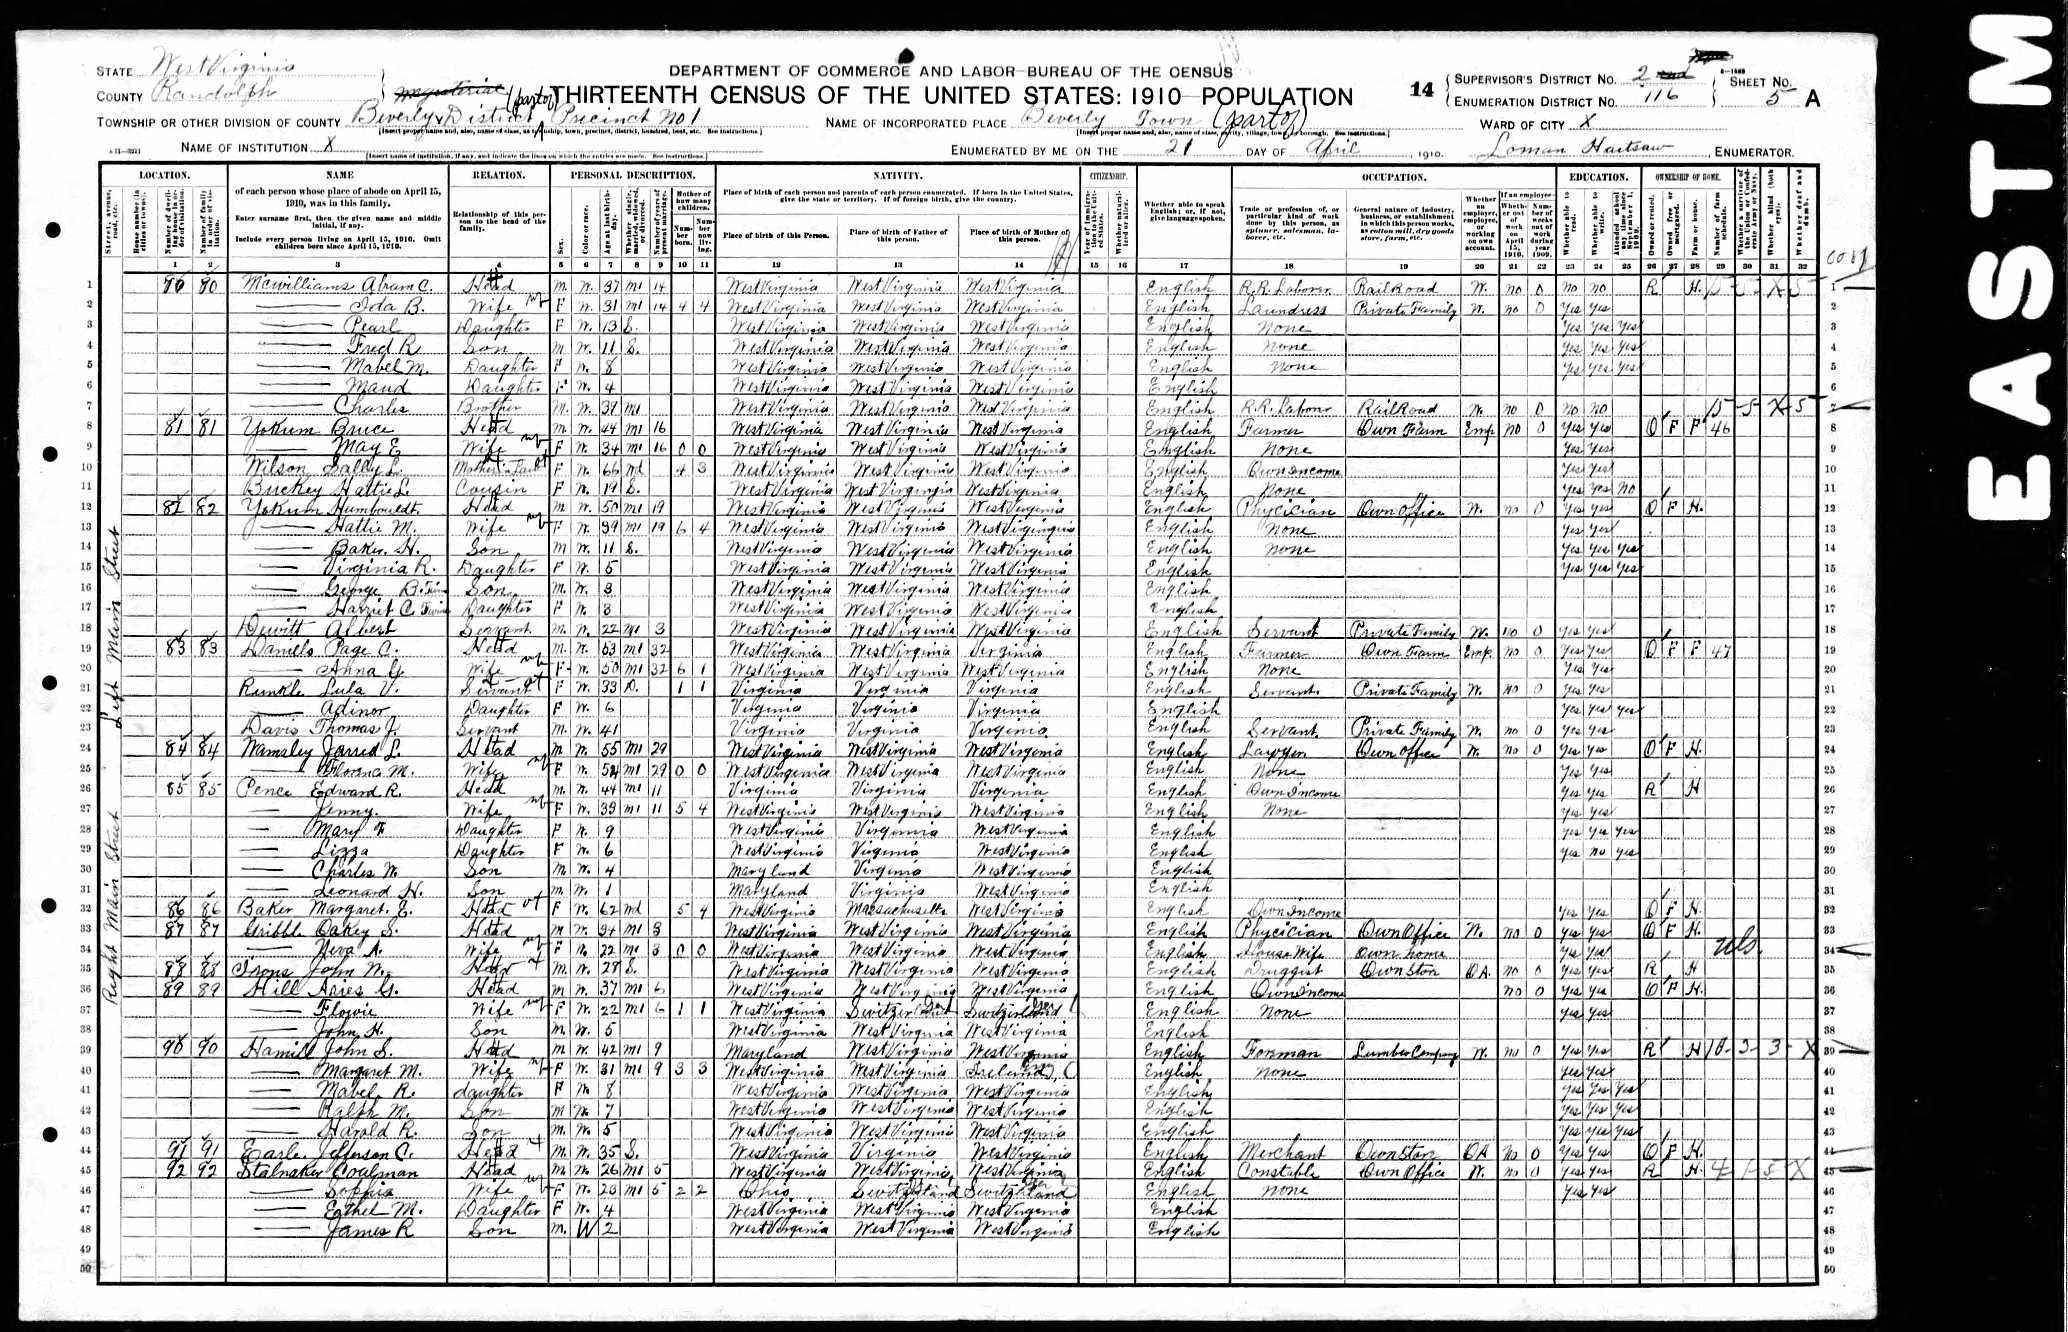 STATE West Virginia
COUNTY Randolph
DEPARTMENT OF COMMERCE AND LABOR—BUREAU OF THE CENSUS
THIRTEENTH CENSUS OF THE UNITED STATES: 1910—POPULATION
14
SUPERVISOR'S DISTRICT NO. 2
ENUMERATION DISTRICT NO. 116
SHEET NO. 5 A
TOWNSHIP OR OTHER DIVISION OF COUNTY Beverly District (part of) Precinct No 1
NAME OF INCORPORATED PLACE Beverly Town (part of)
WARD OF CITY X
NAME OF INSTITUTION X
ENUMERATED BY ME ON THE 21 DAY OF April, 1910. Loman Hartsaw, ENUMERATOR.
EASTM
LOCATION. NAME RELATION. PERSONAL DESCRIPTION. NATIVITY. CITIZENSHIP. OCCUPATION. EDUCATION. OWNERSHIP OF HOME.
of each person whose place of abode on April 15, 1910, was in this family.
Enter surname first, then the given name and middle initial, if any.
Include every person living on April 15, 1910. Omit children born since April 15, 1910.
Relationship of this person to the head of the family.
Place of birth of each person and parents of each person enumerated. If born in the United States, give the state or territory. If of foreign birth, give the country.
Place of birth of this Person. Place of birth of Father of this person. Place of birth of Mother of this person.
Whether able to speak English; or, if not, give language spoken.
1 2 3 4 5 6 7 8 9 10 11 12 13 14 15 16 17 18 19 20 21 22 23 24 25 26 27 28 29 30 31 32
Left Main Street
Right Main Street
1 80 80 McWilliams Abram C. Head M. W. 37 M1 14 West Virginia West Virginia West Virginia English R.R. Laborer Railroad W. no 0 no no R H.
2 Ida B. Wife F W. 31 M1 14 4 4 West Virginia West Virginia West Virginia English Laundress Private Family W. no 0 Yes Yes
3 Pearl Daughter F W. 13 S. West Virginia West Virginia West Virginia English None Yes Yes Yes
4 Fred R Son M W. 11 S. West Virginia West Virginia West Virginia English None Yes Yes Yes
5 Mabel M. Daughter F W. 8 West Virginia West Virginia West Virginia English None Yes Yes Yes
6 Maud Daughter F W. 4 West Virginia West Virginia West Virginia English
7 Charles Brother M. W. 37 M1 West Virginia West Virginia West Virginia English R.R. Laborer Railroad W. no 0 no no
8 81 81 Yokum Bruce Head M W. 44 M1 16 West Virginia West Virginia West Virginia English Farmer Own Farm Emp no 0 Yes Yes O F F 46
9 May E Wife F W. 34 M1 16 0 0 West Virginia West Virginia West Virginia English None Yes Yes
10 Wilson Sally L. Mother-in-Law F W. 66 Wd 4 3 West Virginia West Virginia West Virginia English Own Income Yes Yes
11 Buckey Hattie L. Cousin F W. 19 S. West Virginia West Virginia West Virginia English None Yes Yes No
12 82 82 Yokum Humbouldt Head M W. 50 M1 19 West Virginia West Virginia West Virginia English Phycician Own Office W. no 0 Yes Yes O F H.
13 Hattie M. Wife F W. 39 M1 19 6 4 West Virginia West Virginia West Virginia English None Yes Yes
14 Baker H. Son M W. 11 S. West Virginia West Virginia West Virginia English None Yes Yes Yes
15 Virginia R. Daughter F W. 5 West Virginia West Virginia West Virginia English Yes Yes Yes
16 George B. Twin Son M. W. 3 West Virginia West Virginia West Virginia English
17 Harriet C. Twin Daughter F W. 3 West Virginia West Virginia West Virginia English
18 Dewitt Albert Servant M. W. 22 M1 3 West Virginia West Virginia West Virginia English Servant Private Family W. no 0 Yes Yes
19 83 83 Daniels Page C. Head M. W. 63 M1 32 West Virginia West Virginia Virginia English Farmer Own Farm Emp. no 0 Yes Yes O F F 47
20 Anna G Wife F W. 50 M1 32 6 1 West Virginia West Virginia West Virginia English None Yes Yes
21 Runkle Lula V. Servant F W. 33 D. 1 1 Virginia Virginia Virginia English Servant Private Family W. no 0 Yes Yes
22 Adinor Daughter F W. 6 Virginia Virginia Virginia English Yes Yes Yes
23 Davis Thomas J. Servant M. W. 41 Virginia Virginia Virginia English Servant. Private Family W. no 0 Yes Yes
24 84 84 Wamsley Jarred L. Head M W. 55 M1 29 West Virginia West Virginia West Virginia English Lawyer Own Office W. no 0 Yes Yes O F H.
25 Florence M. Wife F W. 54 M1 29 0 0 West Virginia West Virginia West Virginia English None Yes Yes
26 85 85 Pence Edward R. Head M. W. 44 M1 11 Virginia Virginia Virginia English Own Income Yes Yes R H
27 Jenny Wife F W. 39 M1 11 5 4 West Virginia West Virginia West Virginia English None Yes Yes
28 Mary F Daughter F W. 9 West Virginia Virginia West Virginia English Yes Yes Yes
29 Lizza Daughter F W. 6 West Virginia Virginia West Virginia English Yes No Yes
30 Charles W. Son M W. 4 Maryland Virginia West Virginia English
31 Leonard H. Son M. W. 1 Maryland Virginia West Virginia English
32 86 86 Baker Margaret E. Head F W. 62 Wd 5 4 West Virginia Massachusetts West Virginia English Own Income Yes Yes O F H.
33 87 87 Gribble Oakey S. Head M W. 34 M1 3 West Virginia West Virginia West Virginia English Phycician Own Office W. no 0 Yes Yes O F H.
34 Neva A. Wife F W. 22 M1 3 0 0 West Virginia West Virginia West Virginia English House Wife Own home Yes Yes
35 88 88 Irons John N. Head M. W. 28 S. West Virginia West Virginia West Virginia English Druggist Own Store OA. no 0 Yes Yes R H
36 89 89 Hill Aries G. Head M W. 37 M1 6 West Virginia West Virginia West Virginia English Own Income no 0 Yes Yes O F H.
37 Flowie Wife F W. 22 M1 6 1 1 West Virginia Switzerland Switzerland English None Yes Yes
38 John H. Son M W. 5 West Virginia West Virginia West Virginia English
39 90 90 Hamill John S. Head M W. 42 M1 9 Maryland West Virginia West Virginia English Forman Lumber Company W. no 0 Yes Yes R H 10-3-3-X
40 Margaret M. Wife F W. 31 M1 9 3 3 West Virginia West Virginia Ireland English None Yes Yes
41 Mabel R. daughter F W. 8 West Virginia West Virginia West Virginia English Yes Yes Yes
42 Ralph M. Son M W. 7 West Virginia West Virginia West Virginia English Yes Yes Yes
43 Harold R. Son M W. 5 West Virginia West Virginia West Virginia English Yes Yes Yes
44 91 91 Earle Jefferson C. Head M. W. 35 S. West Virginia Virginia West Virginia English Merchant Own Store OA No 0 Yes Yes O F H.
45 92 92 Stalnaker Coulman Head M. W. 26 M1 5 West Virginia West Virginia West Virginia English Constable Own Office W. no 0 Yes Yes R H. 4-1-5-X
46 Sophia Wife F W. 23 M1 5 2 2 Ohio Switzerland Switzerland English None Yes Yes
47 Ethel M. Daughter F W. 4 West Virginia West Virginia West Virginia English
48 James R Son M. W 2 West Virginia West Virginia West Virginia English
49
50